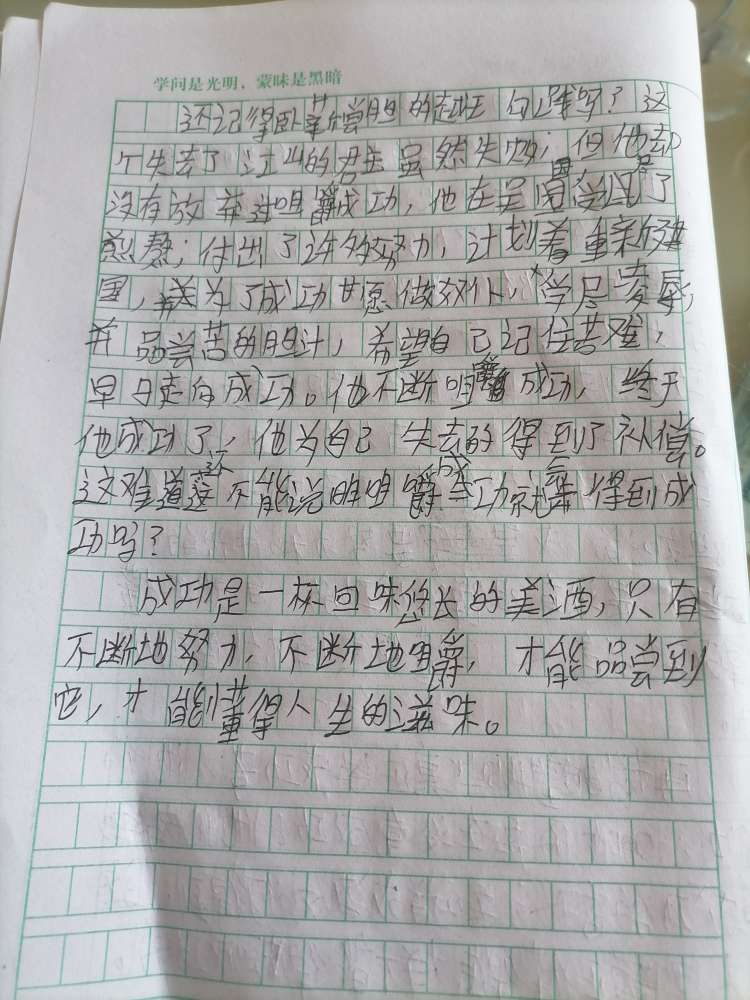 学问是光明，蒙昧是黑暗
还记得卧薪尝胆的越王勾践吗？这
个失去了江山的君主虽然失败；但他却
没有放弃过咀嚼成功，他在吴国受尽了
煎熬；付出了许多努力，计划着重新建
国，并为了成功甘愿做奴仆，受尽凌辱，
并品尝苦的胆汁，希望自己记住苦难，
早日走向成功。他不断咀嚼成功，终于
他成功了，他为自己失去的得到了补偿。
这难道还不能说明咀嚼成功就会得到成
功吗？
成功是一杯回味悠长的美酒，只有
不断地努力，不断地咀嚼，才能品尝到
它，才能懂得人生的滋味。